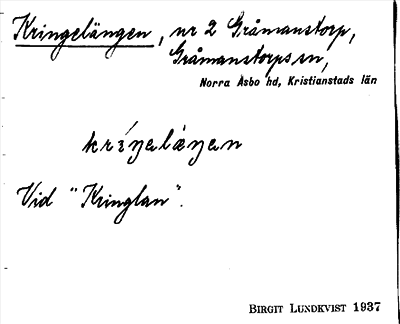 Kringelängen, nr 2 Gråmanstorp,
Gråmanstorps sn,
Norra Åsbo hd, Kristianstads län
kríŋəlæ̀ŋən
Vid "Kringlan".
BIRGIT LUNDKVIST 1937